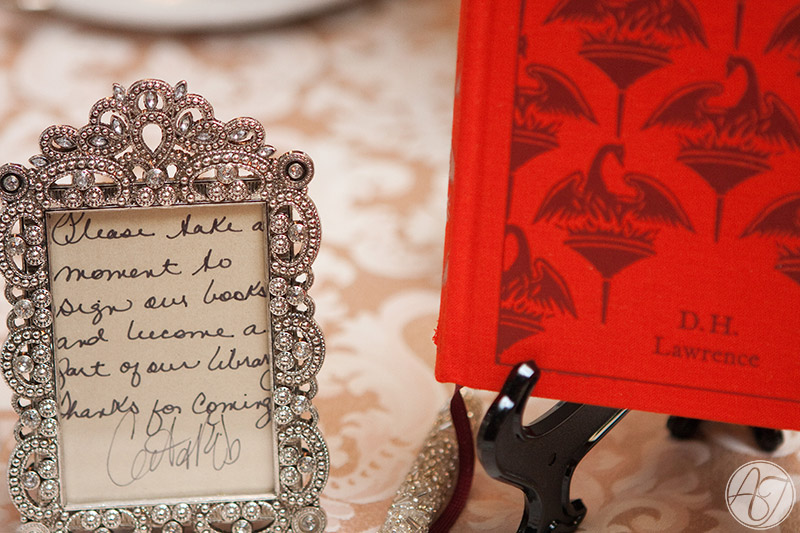 Please take a
moment to
sign our books
and become a
part of our library
Thanks for coming
D. H.
Lawrence